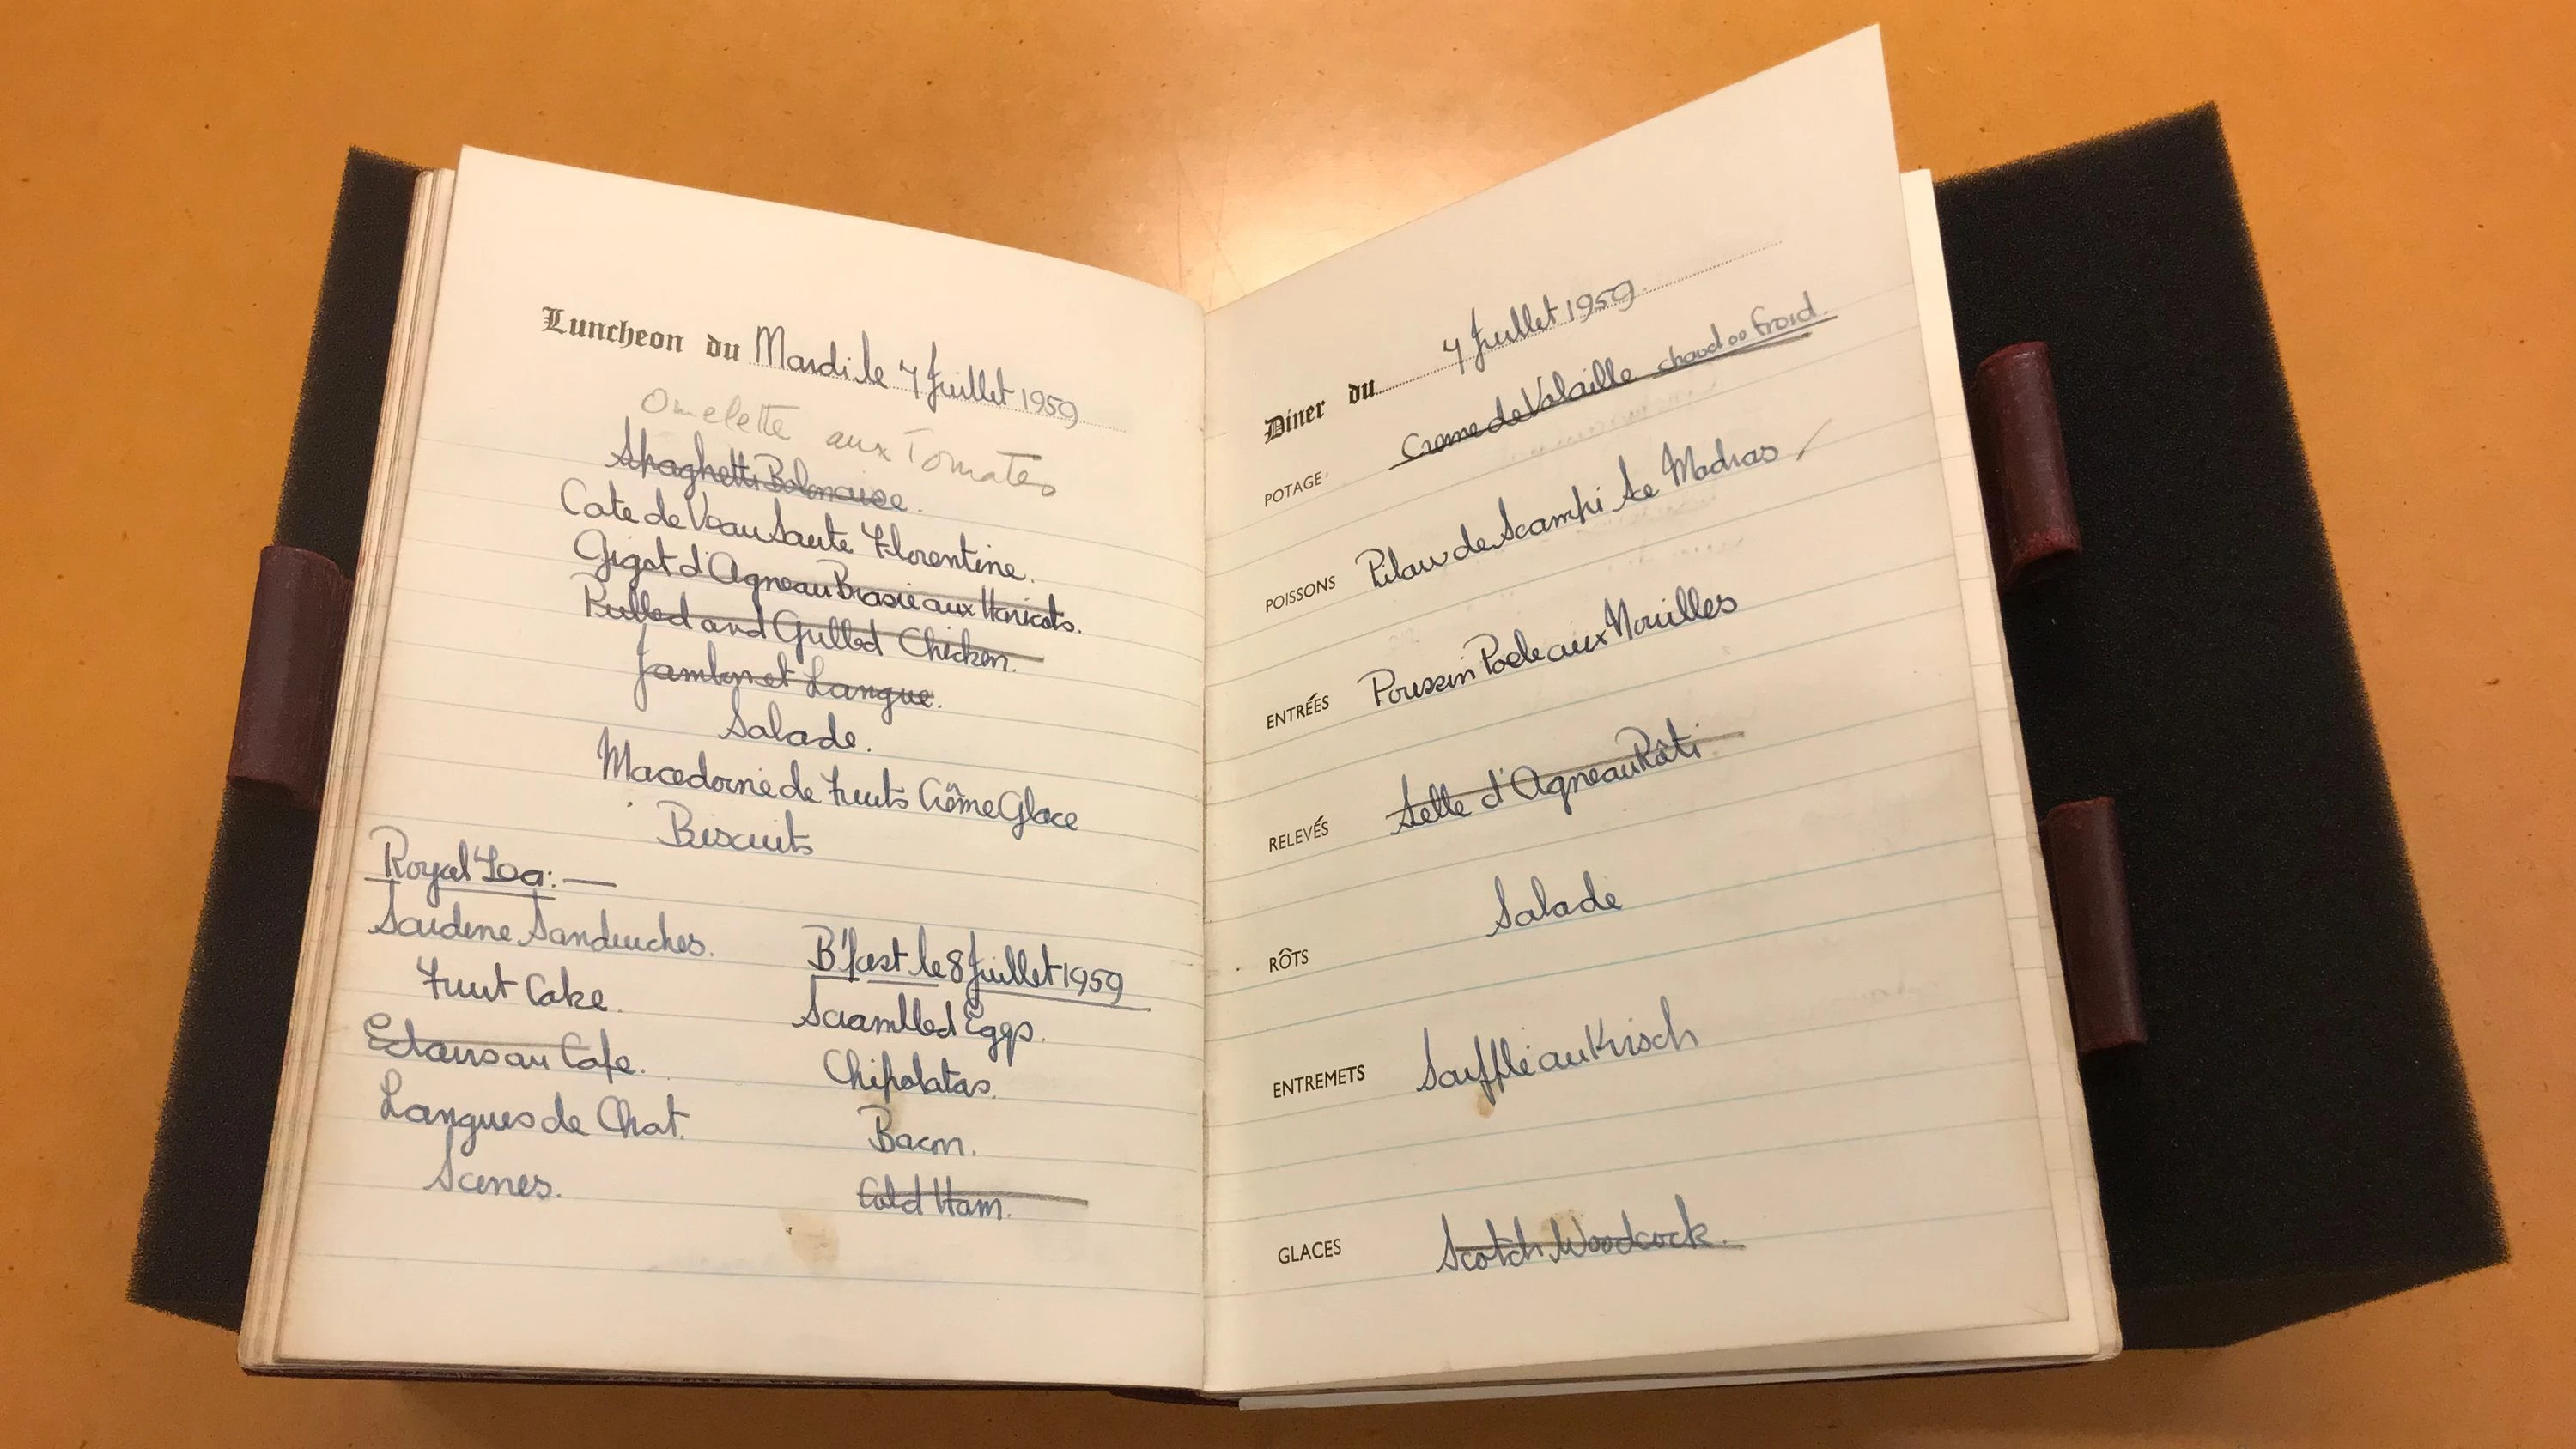 Luncheon du Mardi le 7 Juillet 1959
Omelette aux Tomates
Spaghetti Bolonaise.
Cote de Veau Saute Florentine.
Gigot d'Agneau Brasie aux Haricots.
Pulled and Grilled Chicken.
Jambon et Langue.
Salade.
Macedoine de Fruits Crême Glace
Biscuits
Royal Tea:—
Sardine Sandwiches.
Fruit Cake.
Eclairs au Cafe.
Langues de Chat.
Scones.
B'fast le 8 Juillet 1959
Scrambled Eggs.
Chipolatas.
Bacon.
Cold Ham.
Diner du 7 Juillet 1959
POTAGE Creme de Volaille chaud ou froid.
POISSONS Pilaw de Scampi Sce Madras
ENTRÉES Poussin Poele aux Nouilles
RELEVÉS Selle d'Agneau Rôti.
RÔTS Salade
ENTREMETS Soufflé au Kirsch
GLACES Scotch Woodcock.